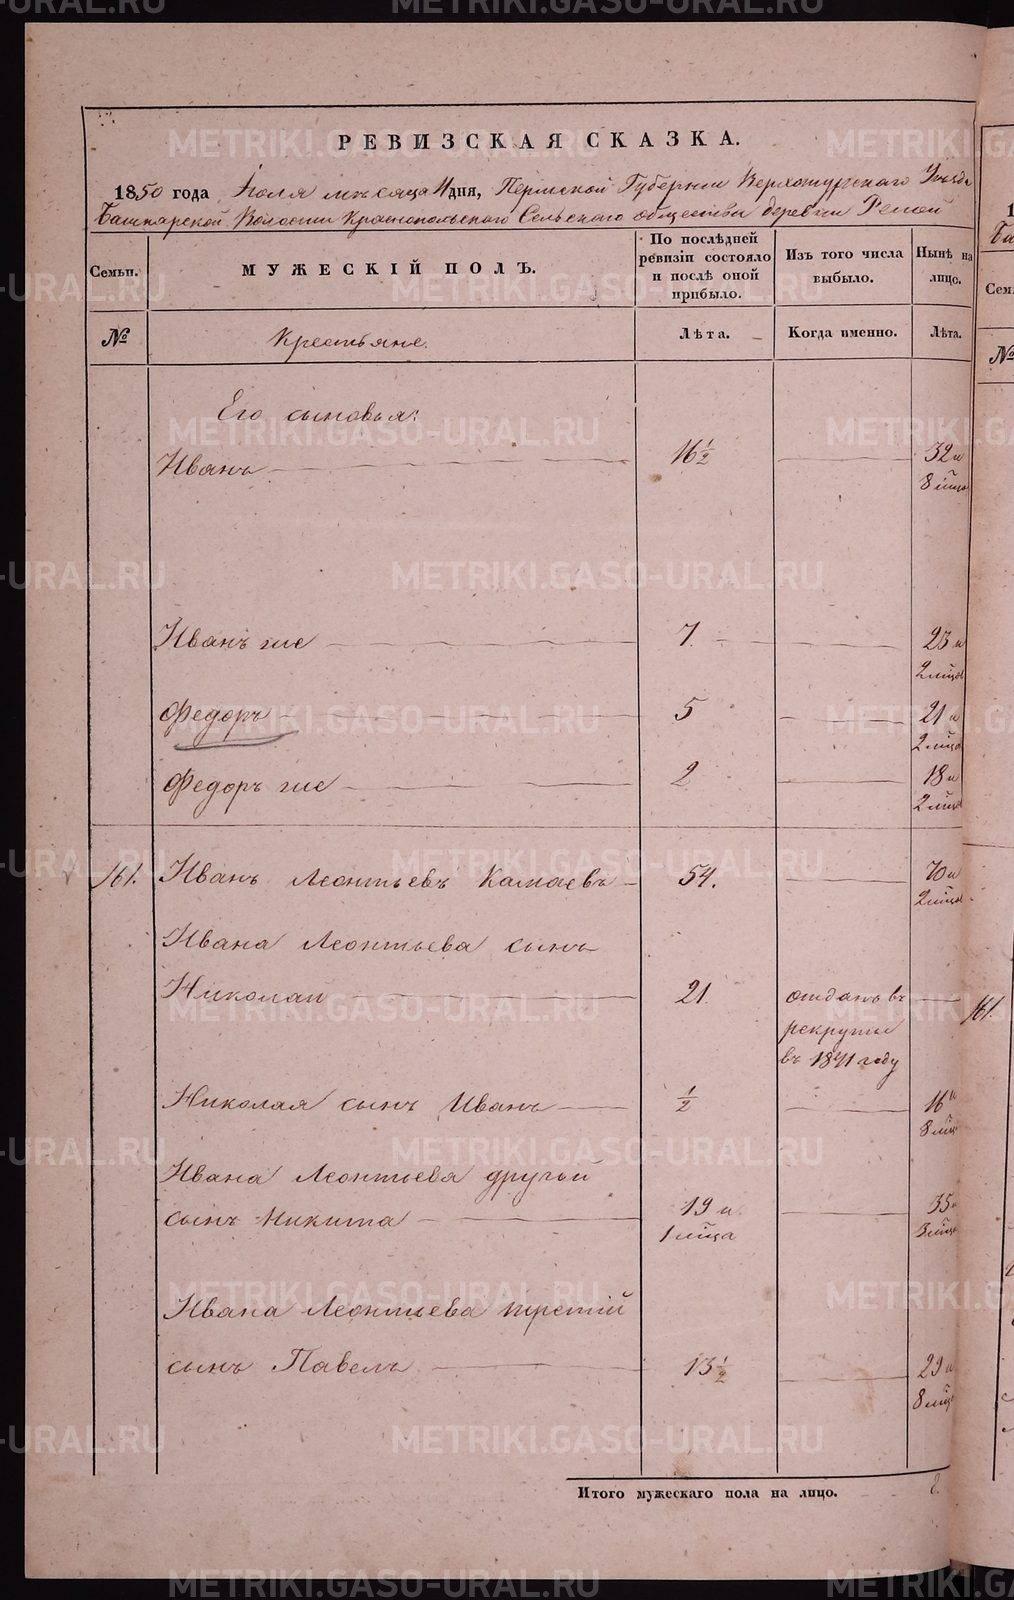 РЕВИЗСКАЯ СКАЗКА.
1850 года Іюля месяца 11 дня, Пермской Губерніи Верхотурскаго Уезда
Башкарской Волости Краснопольскаго Сельскаго общества деревни Репой
Семьи.
МУЖЕСКІЙ ПОЛЪ.
По послѣдней ревизіи состояло и послѣ оной прибыло.
Изъ того числа выбыло.
Нынѣ на лицо.
№
Крестьяне.
Лѣта.
Когда именно.
Лѣта.
Его сыновья:
Иванъ 16 1/2 32 и
8 м͠ца
Иванъ же 7. 23 и
2 м͠ца
Федоръ 5 21 и
2 м͠ца
Федоръ же 2 18 и
2 м͠ца
161. Иванъ Леонтьевъ Камаевъ 54. 70 и
2 м͠ца
Ивана Леонтьева сынъ
Николай 21. отданъ въ
рекруты
въ 1841 году
Николая сынъ Иванъ 1/2 16 и
8 м͠ца
Ивана Леонтьева другой
сынъ Никита 19 и 35 и
1 м͠ца 3 м͠ца
Ивана Леонтьева третій
сынъ Павелъ 13 1/2 29 и
8 м͠ца
Итого мужескаго пола на лицо. 8.
161.
№
METRIKI.GASO-URAL.RU